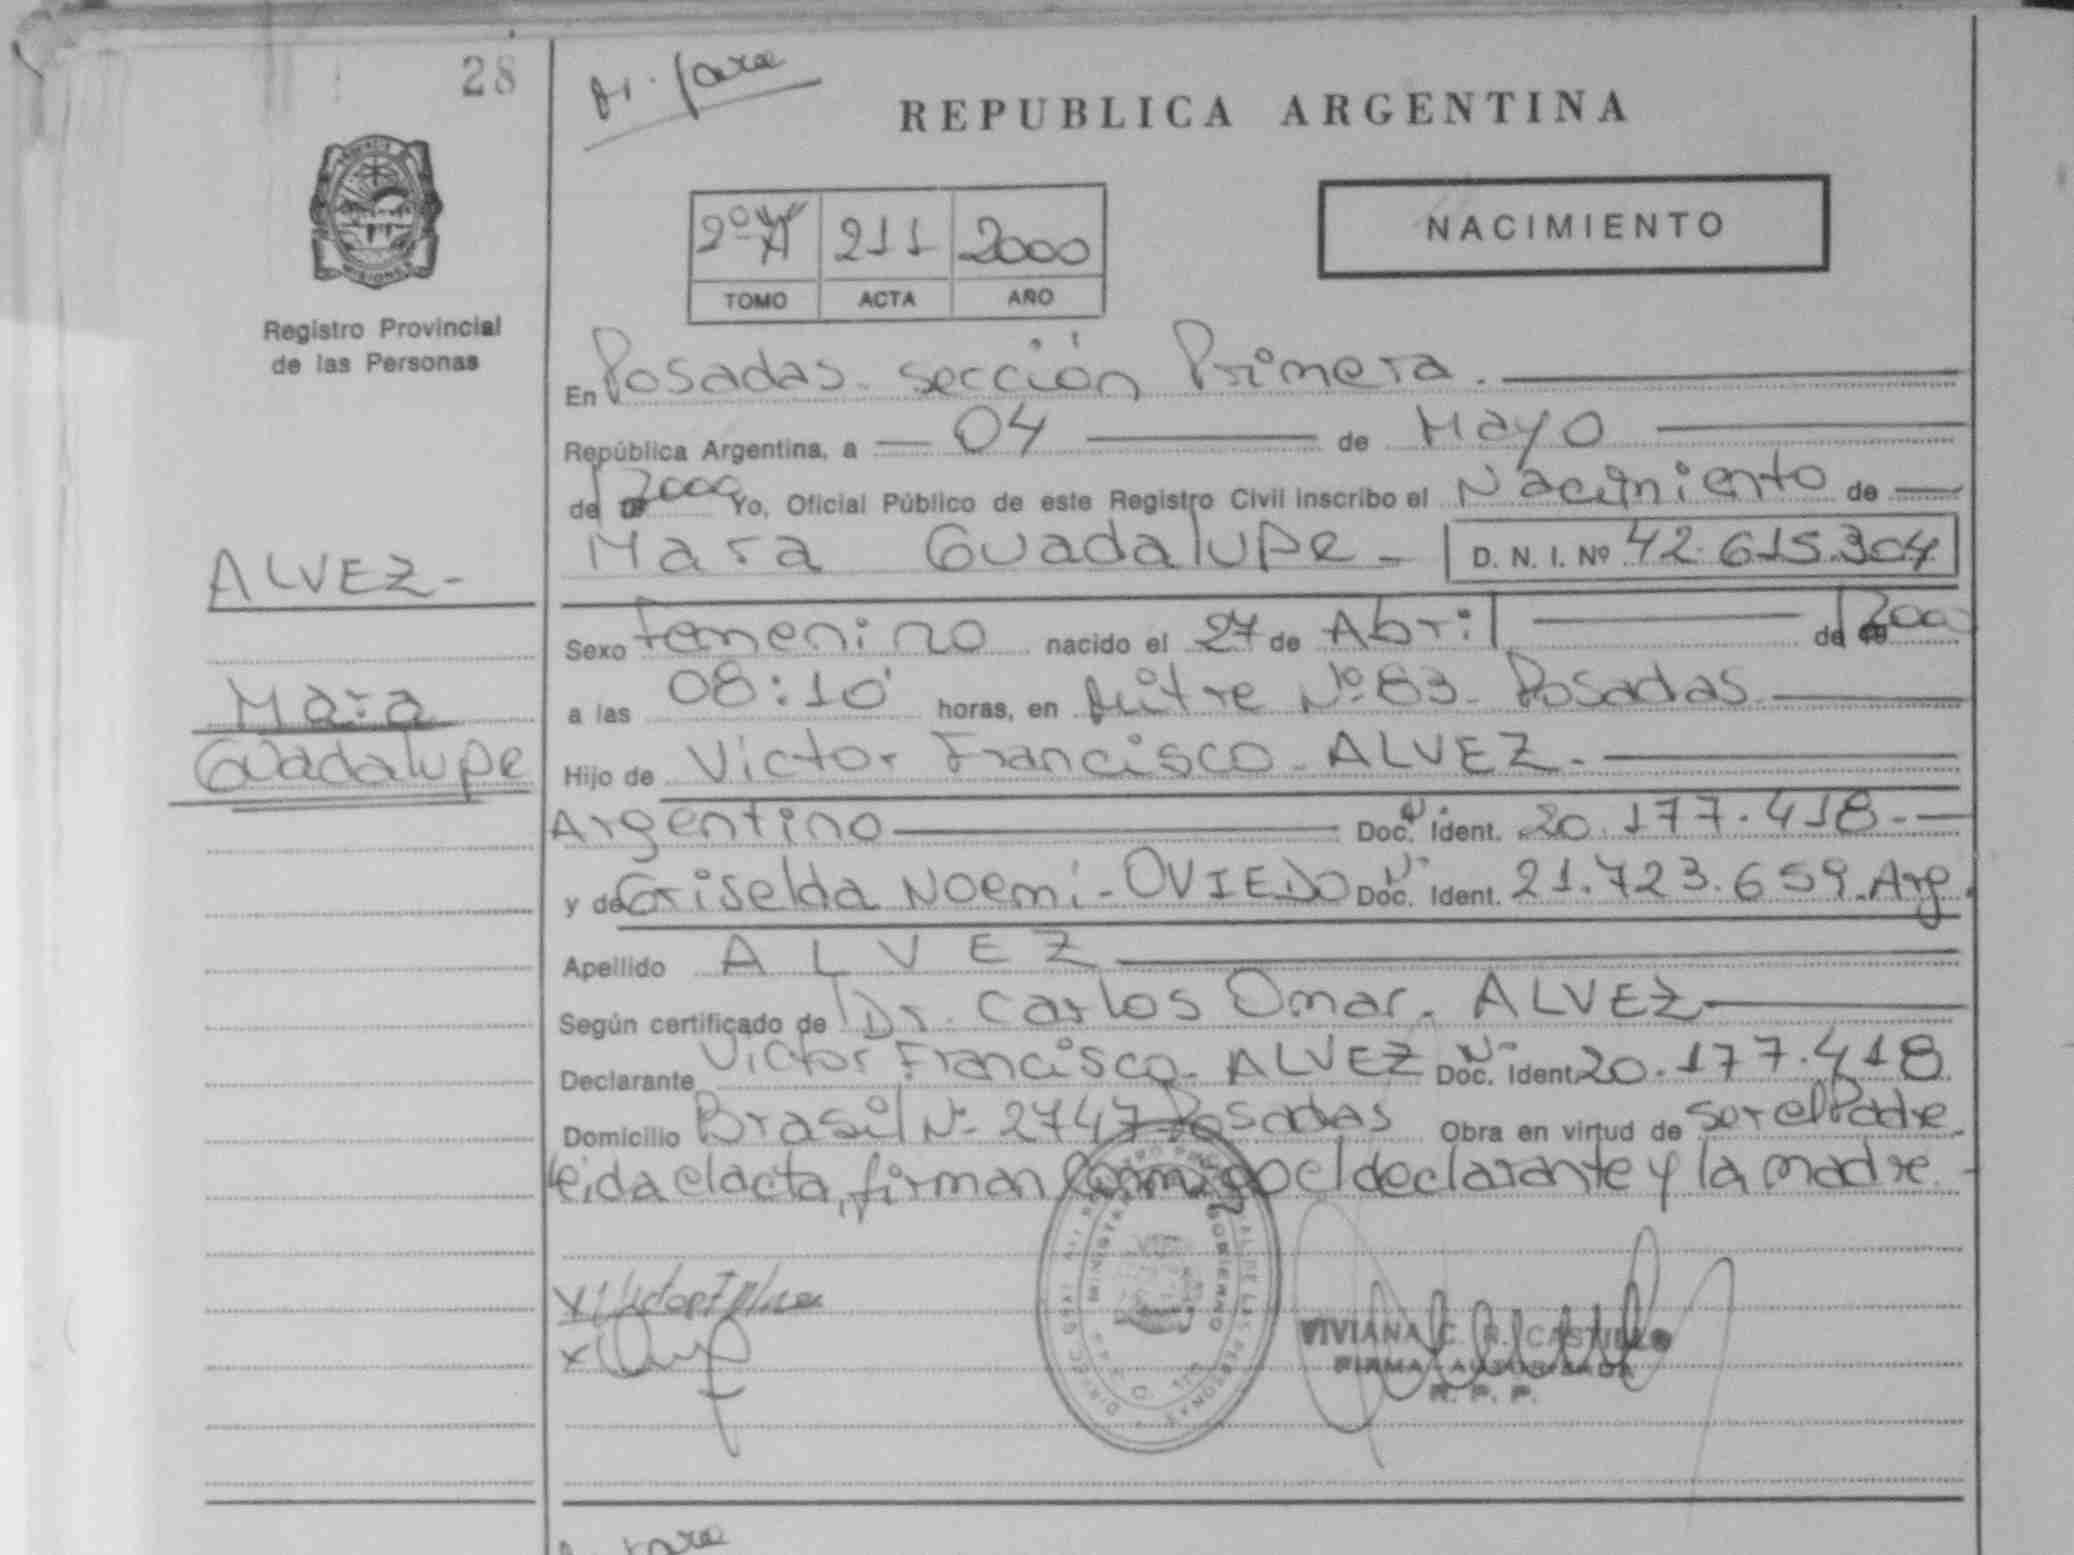 28
REPUBLICA ARGENTINA
NACIMIENTO
2º A 211 2000
TOMO ACTA AÑO
Registro Provincial
de las Personas
En Posadas. sección Primera.
República Argentina, a 04 de Mayo
de 2000 Yo, Oficial Público de este Registro Civil inscribo el Nacimiento de
Mara Guadalupe - D. N. I. Nº 42.615.304
ALVEZ -
Sexo Femenino nacido el 27 de Abril de 2000
Mara
a las 08:10 horas, en Mitre Nº 83 - Posadas
Guadalupe
Hijo de Victor Francisco - ALVEZ. -
Argentino Doc. Ident. 20.177.418. -
y de Griselda Noemi - OVIEDO Doc. Ident. 21.723.659. Arg.
Apellido ALVEZ
Según certificado de Dr. Carlos Omar. ALVEZ
Declarante Victor Francisco - ALVEZ Doc. Ident. 20.177.418
Domicilio Brasil Nº 2747 Posadas Obra en virtud de ser el Padre
Leida el acta, firman conmigo el declarante y la madre. -
MINISTR GOBIERNO
VIVIANA C. R. CASTILLO
FIRMA AUTORIZADA
R. P. P.